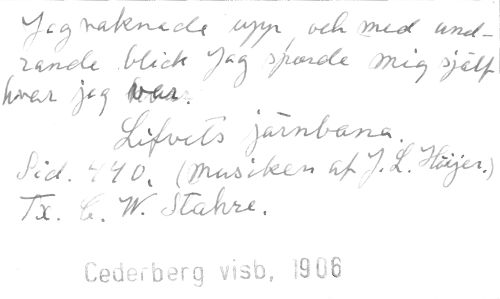 Jag vaknade upp, och med und-
rande blick Jag sporde mig sjelf
hvar jag var.
Lifvets järnbana.
Sid. 440. (musiken af J. L. Höijer.)
Tx. C. W. Stahre.
Cederberg visb, 1906